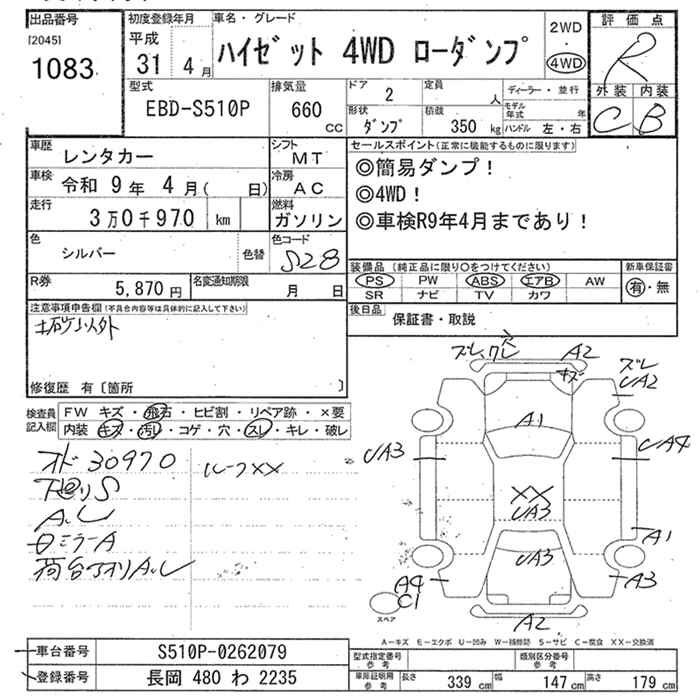 出品番号 初度登録年月 車名・グレード 2WD 評価点
[2045] 平成 ハイゼット 4WD ローダンプ ・ R
1083 31年4月 4WD
型式 排気量 ドア 2 定員 人 ディーラー・並行 外装 内装
EBD-S510P 660 CC 形状 ダンプ 積載 350 kg モデル年式 年 ハンドル 左・右 C B
車歴 レンタカー シフト MT セールスポイント(正常に機能するものに限ります)
車検 令和 9年 4月( 日) 冷房 AC ◎簡易ダンプ!
走行 3万0千970 km 燃料 ガソリン ◎4WD!
◎車検R9年4月まであり!
色 シルバー 色替 色コード S28
装備品(純正品に限り○をつけてください) 新車保証書
R券 5,870円 名変通知期限 月 日 PS PW ABS エアB AW 有・無
SR ナビ TV カワ
注意事項申告欄(不具合内容等は具体的に記入して下さい) 後日品 保証書・取説
修復歴 有〔箇所 〕
検査員記入欄 FW キズ・飛石・ヒビ割・リペア跡・×要
内装 キズ・汚レ・コゲ・穴・スレ・キレ・破レ
オド30970 ルーフXX
下廻りS
A.U
ロミラーA
荷台アオリA.U
ズレ A2 キズ ズレ UA2
A1
UA3 UA4
XX
UA3
A1
UA3
A4 A3
C1
スペア
A2
A-キズ E-エクボ U-凹み W-補修跡 S-サビ C-腐食 XX-交換済
車台番号 S510P-0262079 型式指定番号 参考 類別区分番号 参考
登録番号 長岡 480 わ 2235 車庫証明用 参考 長さ 339 cm 幅 147 cm 高さ 179 cm